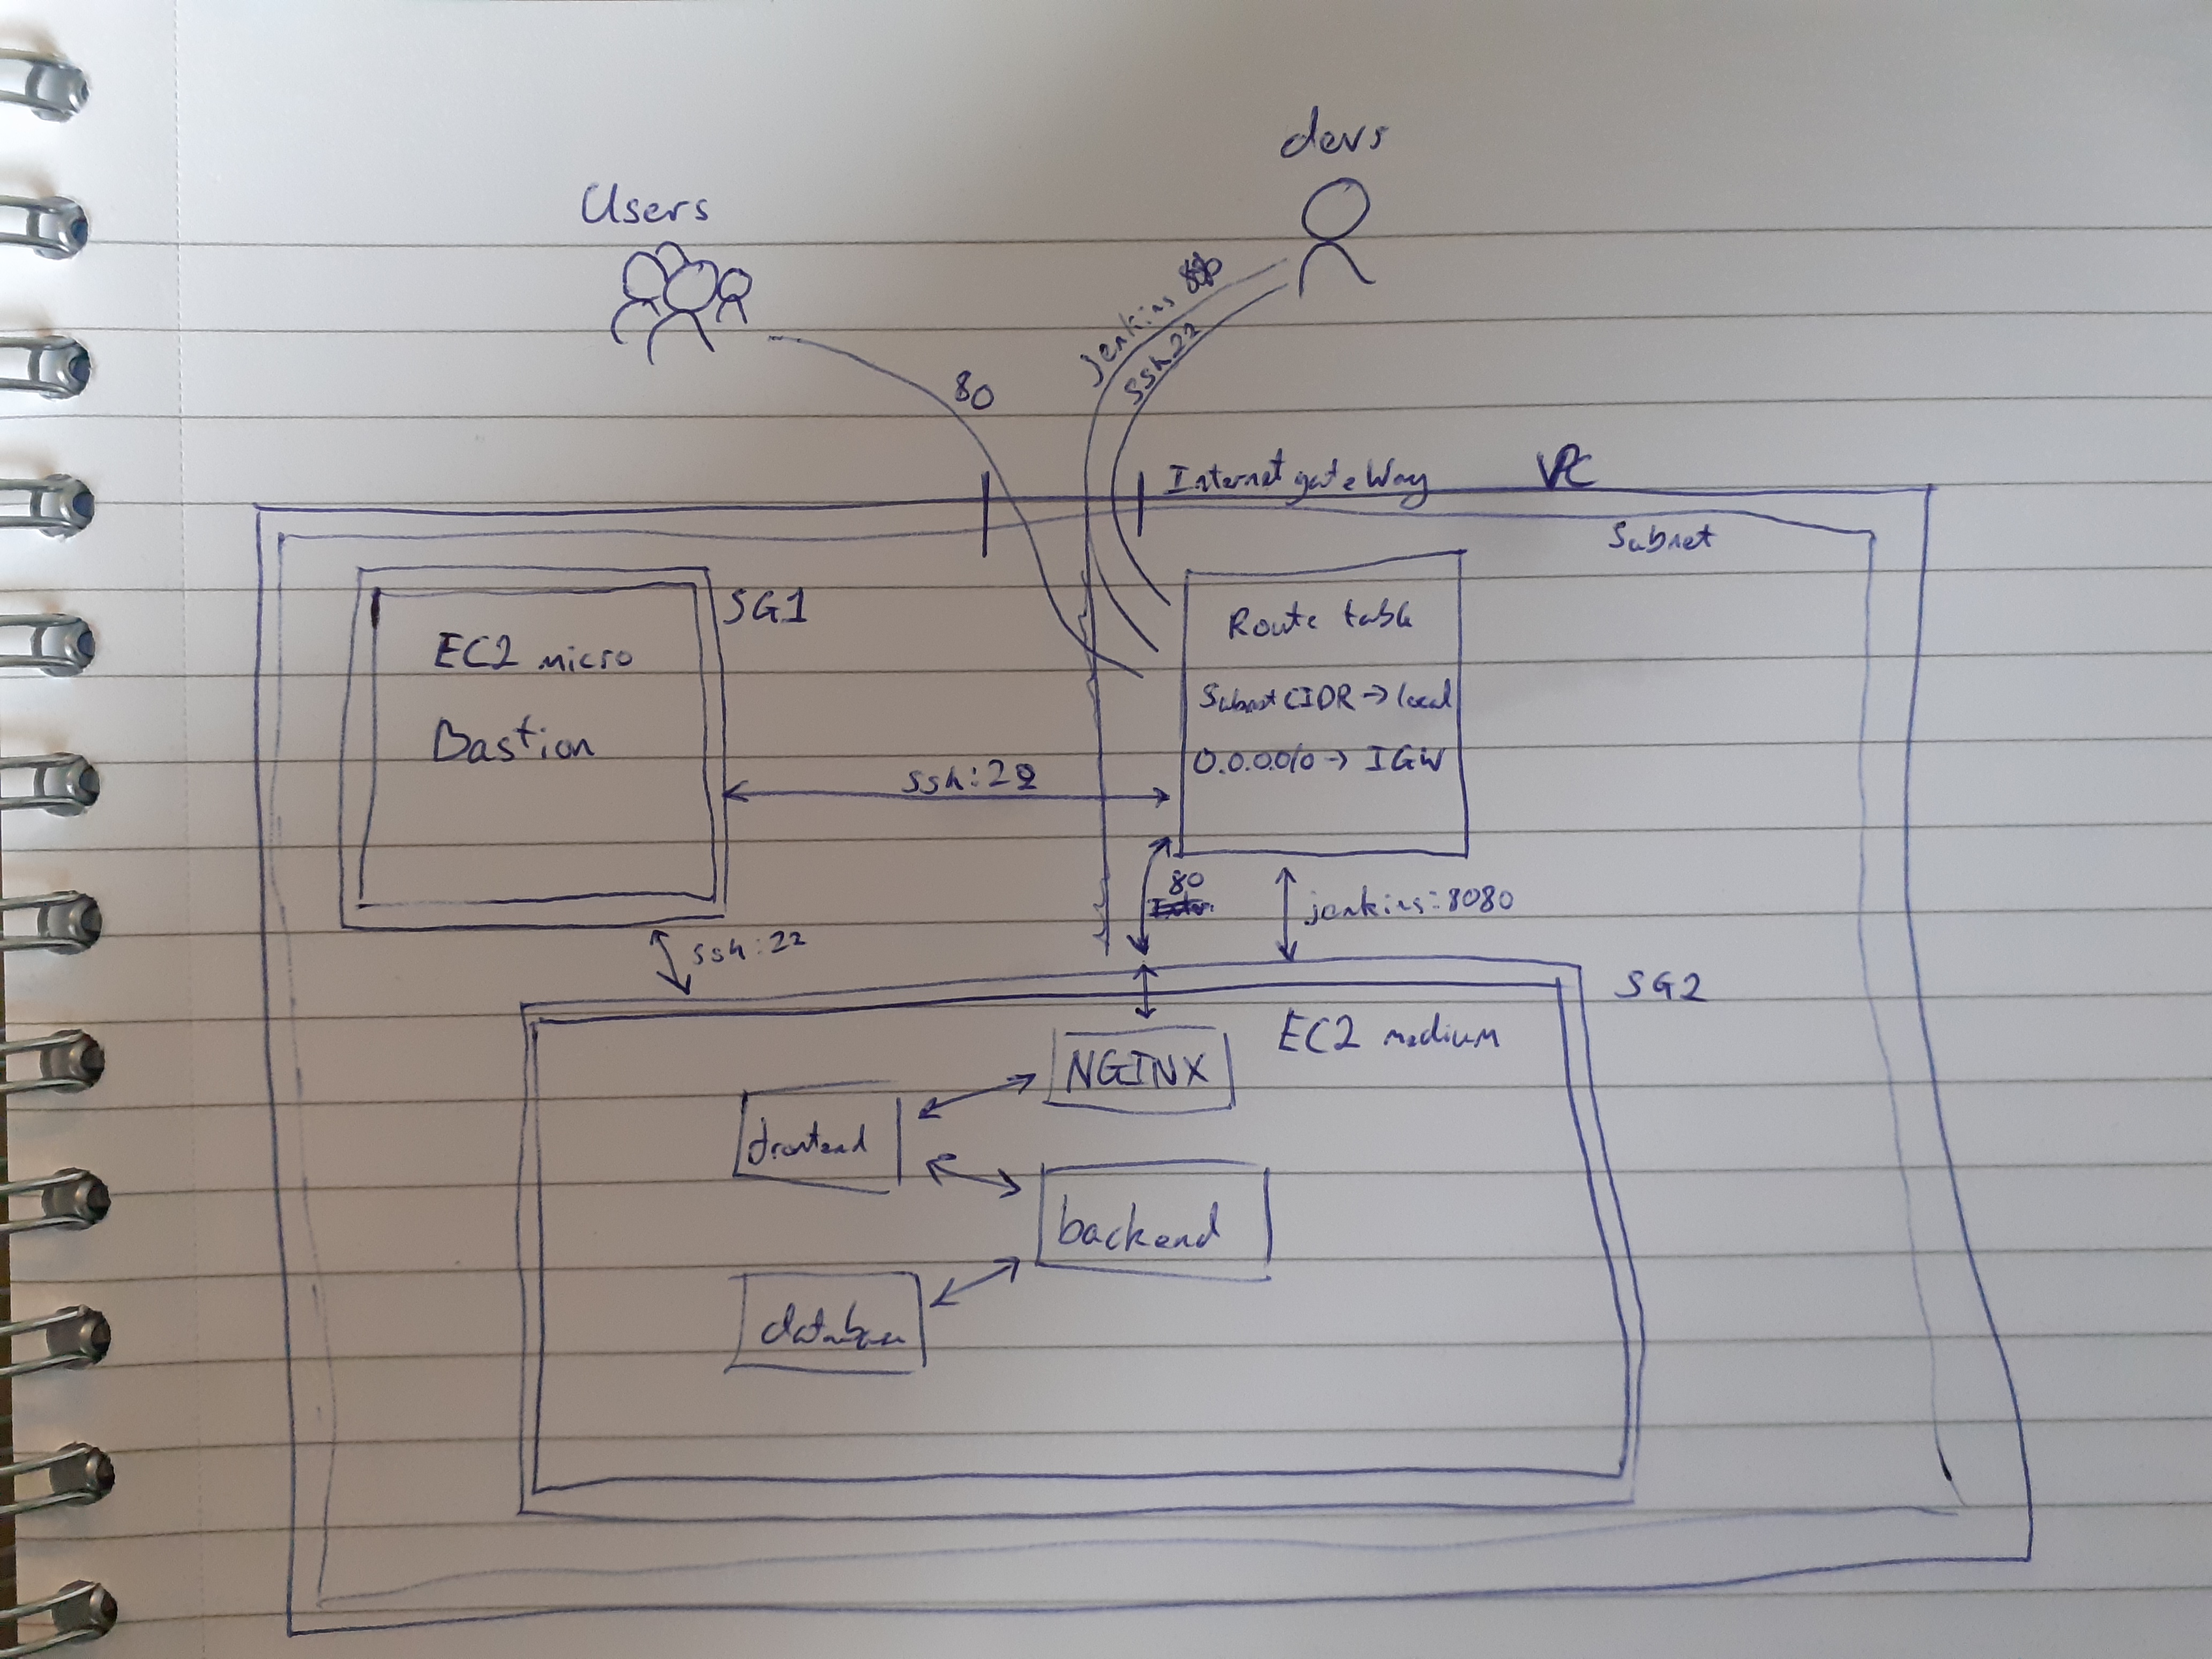 devs
Users
Jenkins
ssh 22
80
Internet gateway
VPC
Subnet
SG1
EC2 micro
Bastion
Route table
Subnet CIDR -> local
0.0.0.0/0 -> IGW
ssh:22
80
jenkins:8080
ssh:22
SG2
EC2 medium
NGINX
frontend
backend
database